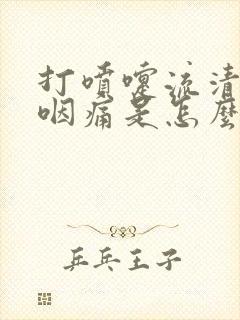 打噴嚏流清
咽痛是怎麼
乒乓王子